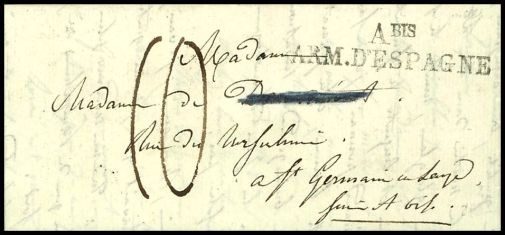 A BIS
ARM. D'ESPAGNE
Madame
Madame de
Rue des Ursulines
a St Germain en Laye,
Seine et Oise.